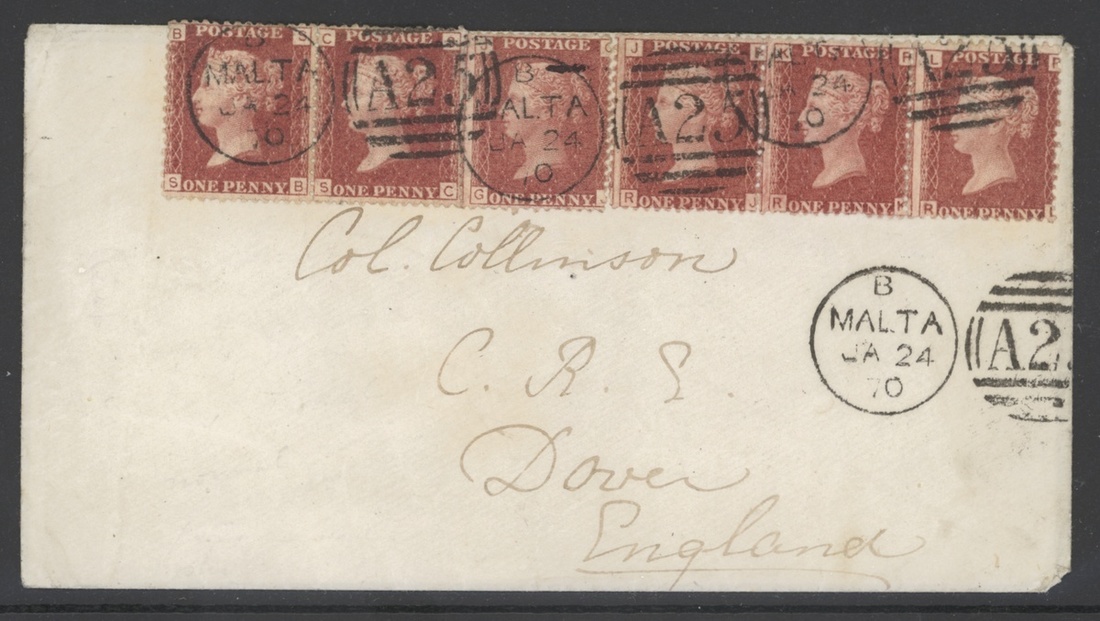 B POSTAGE S
S ONE PENNY B
C POSTAGE S
S ONE PENNY C
POSTAGE
G ONE PENNY
J POSTAGE R
R ONE PENNY J
K POSTAGE R
R ONE PENNY K
L P
R ONE PENNY L
B
MALTA
JA 24
70
A25
B
MALTA
JA 24
70
A25
JA 24
70
Col. Collinson
C. R. E.
Dover
England
B
MALTA
JA 24
70
A2